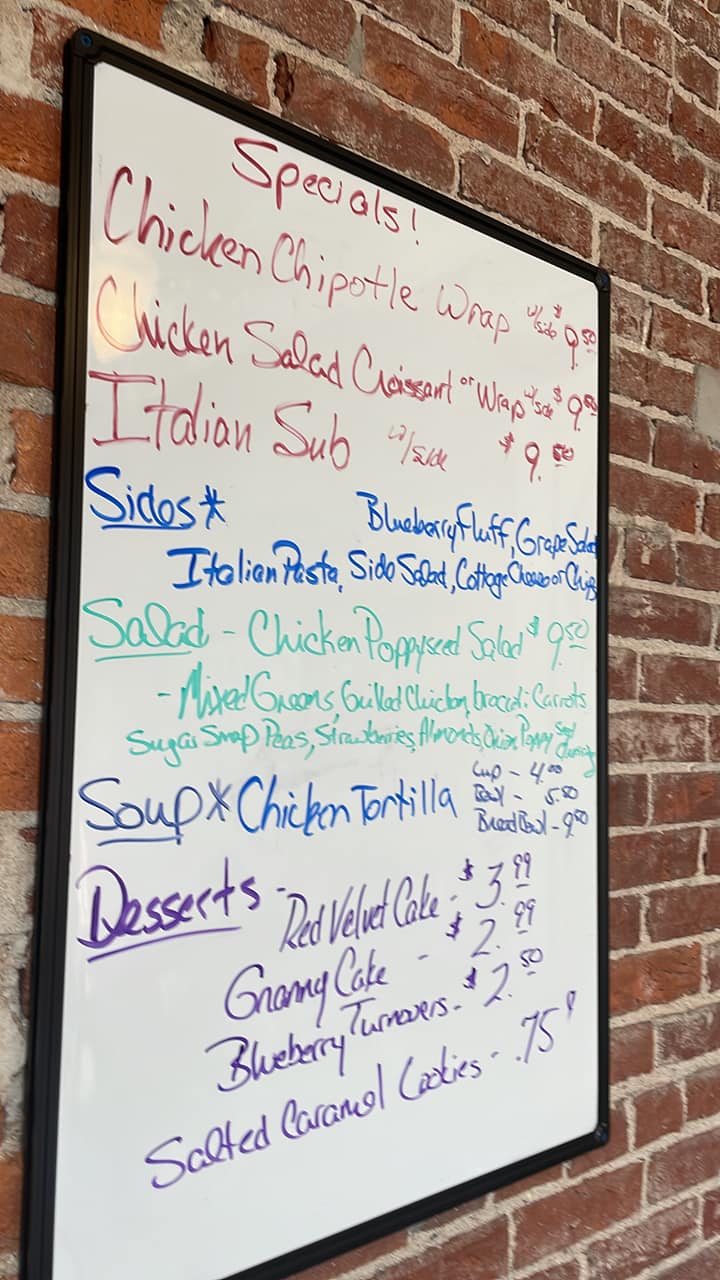 Specials!
Chicken Chipotle Wrap w/side $9.50
Chicken Salad Croissant or Wrap w/side $9.50
Italian Sub w/side $9.50
Sides* Blueberry Fluff, Grape Salad
Italian Pasta, Side Salad, Cottage Cheese or Chips
Salad - Chicken Poppyseed Salad $9.50
- Mixed Greens, Grilled Chicken, broccoli, Carrots
Sugar Snap Peas, Strawberries, Almonds, Onion Poppy Seed dressing
Soup * Chicken Tortilla
Cup - 4.00
Bowl - 5.50
Bread Bowl - 9.50
Desserts - Red Velvet Cake - $3.99
Granny Cake - $2.99
Blueberry Turnovers - $2.50
Salted Caramel Cookies - .75¢